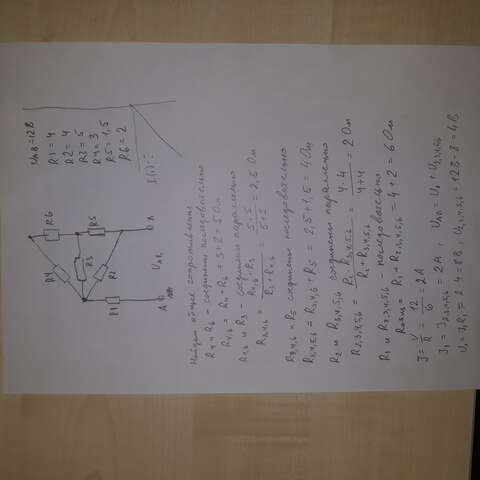 U_AB = 12 В
R1 = 4
R2 = 4
R3 = 5
R4 = 3
R5 = 1,5
R6 = 2
I(i) - ?
R6
R4
R3
R5
R2
R1
U_AB
A
Найдем общее сопротивление
R4 и R6 - соединены последовательно
R4,6 = R4 + R6 = 3 + 2 = 5 Ом
R4,6 и R3 - соединены параллельно
R3,4,6 = R4,6 · R3 / R3 + R4,6 = 5 · 5 / 5 + 5 = 2,5 Ом
R3,4,6 и R5 соединены последовательно
R3,4,5,6 = R3,4,6 + R5 = 2,5 + 1,5 = 4 Ом
R2 и R3,4,5,6 соединены параллельно
R2,3,4,5,6 = R2 · R3,4,5,6 / R2 + R3,4,5,6 = 4 · 4 / 4 + 4 = 2 Ом
R1 и R2,3,4,5,6 - последовательно
Rобщ = R1 + R2,3,4,5,6 = 4 + 2 = 6 Ом
J = U / R = 12 / 6 = 2А
J1 = J2,3,4,5,6 = 2А ; U_AB = U1 + U2,3,4,5,6
U1 = J1R1 = 2·4 = 8В ; U2,3,4,5,6 = 12В - 8 = 4В.